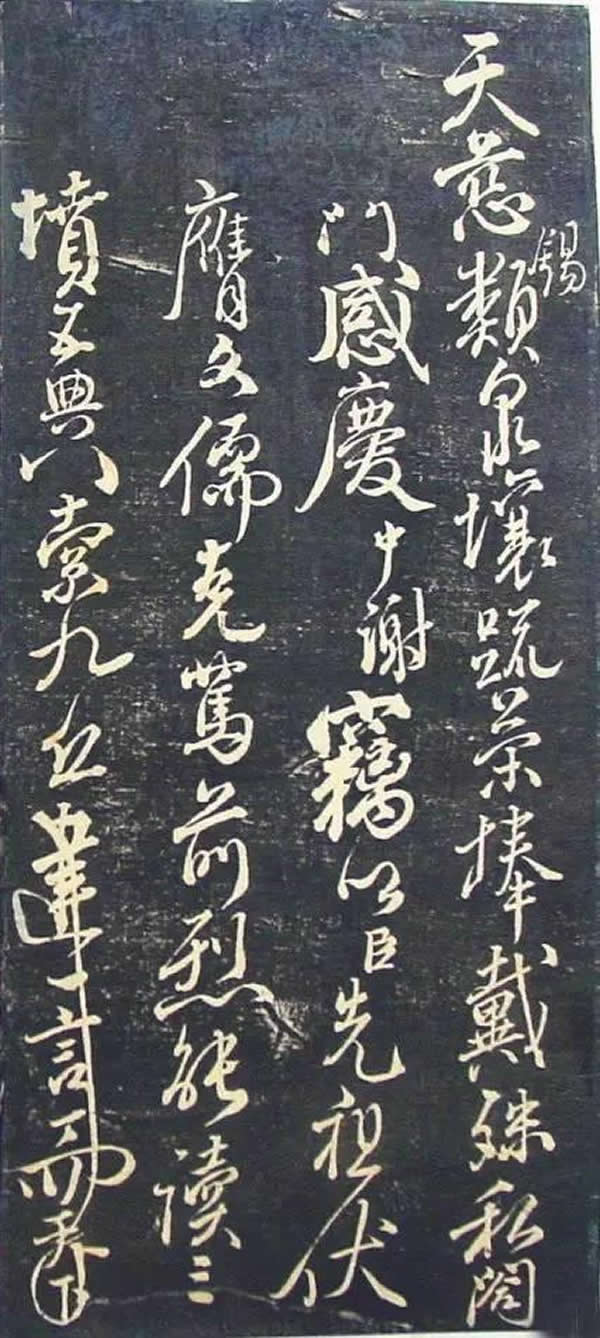 天慈錫類泉壤疏榮捧戴殊私闔
門感慶中謝竊以臣先祖伏
膺文儒克篤前烈能讀三
墳五典八索九丘